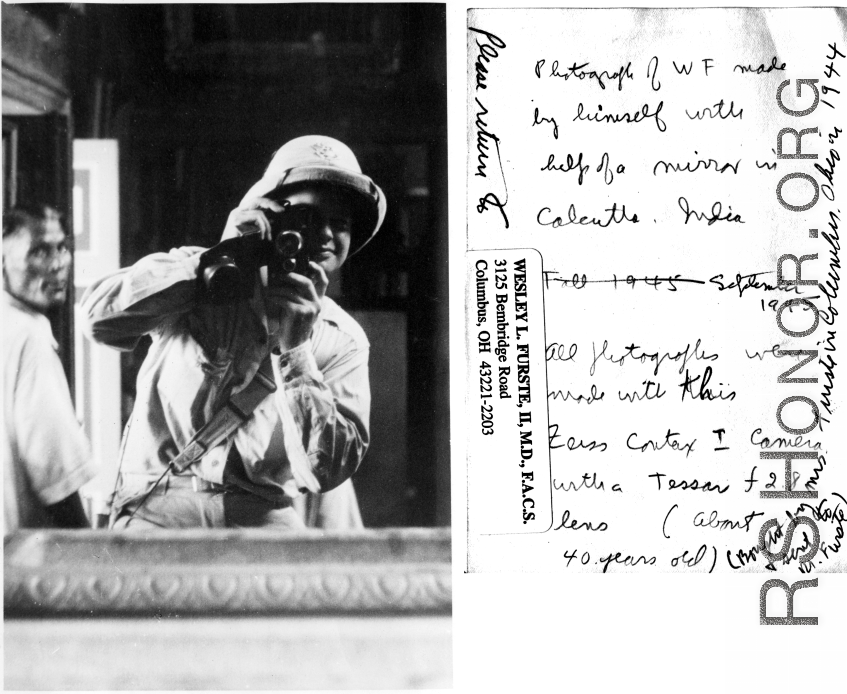 Please return to
Photograph of W F made
by himself with
help of a mirror in
Calcutta. India
Fall 1945 September
All photographs were
made with this
Zeiss Contax I Camera
with a Tessar f 2.8
lens (about
40 years old)
WESLEY L. FURSTE, II, M.D., F.A.C.S.
3125 Bembridge Road
Columbus, OH 43221-2203
Mrs. Furste in Columbus, Ohio in 1944
RSHONOR.ORG